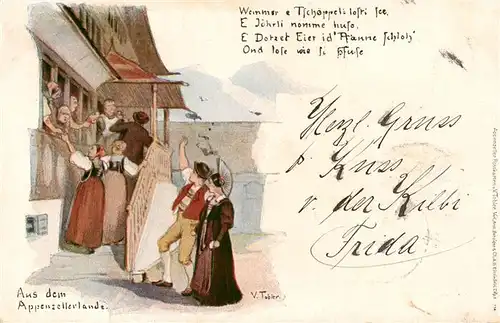 Wemmer e Tschöppeli losti see,
E Jöhrli nomme huso,
E Dotzet Eier id' Pfanne schloh'
Ond lose wie si pfuse
Herzl. Gruss
&
Kuss
v. der Kilbi
Frida
Aus dem
Appenzellerlande.
V. Tobler.